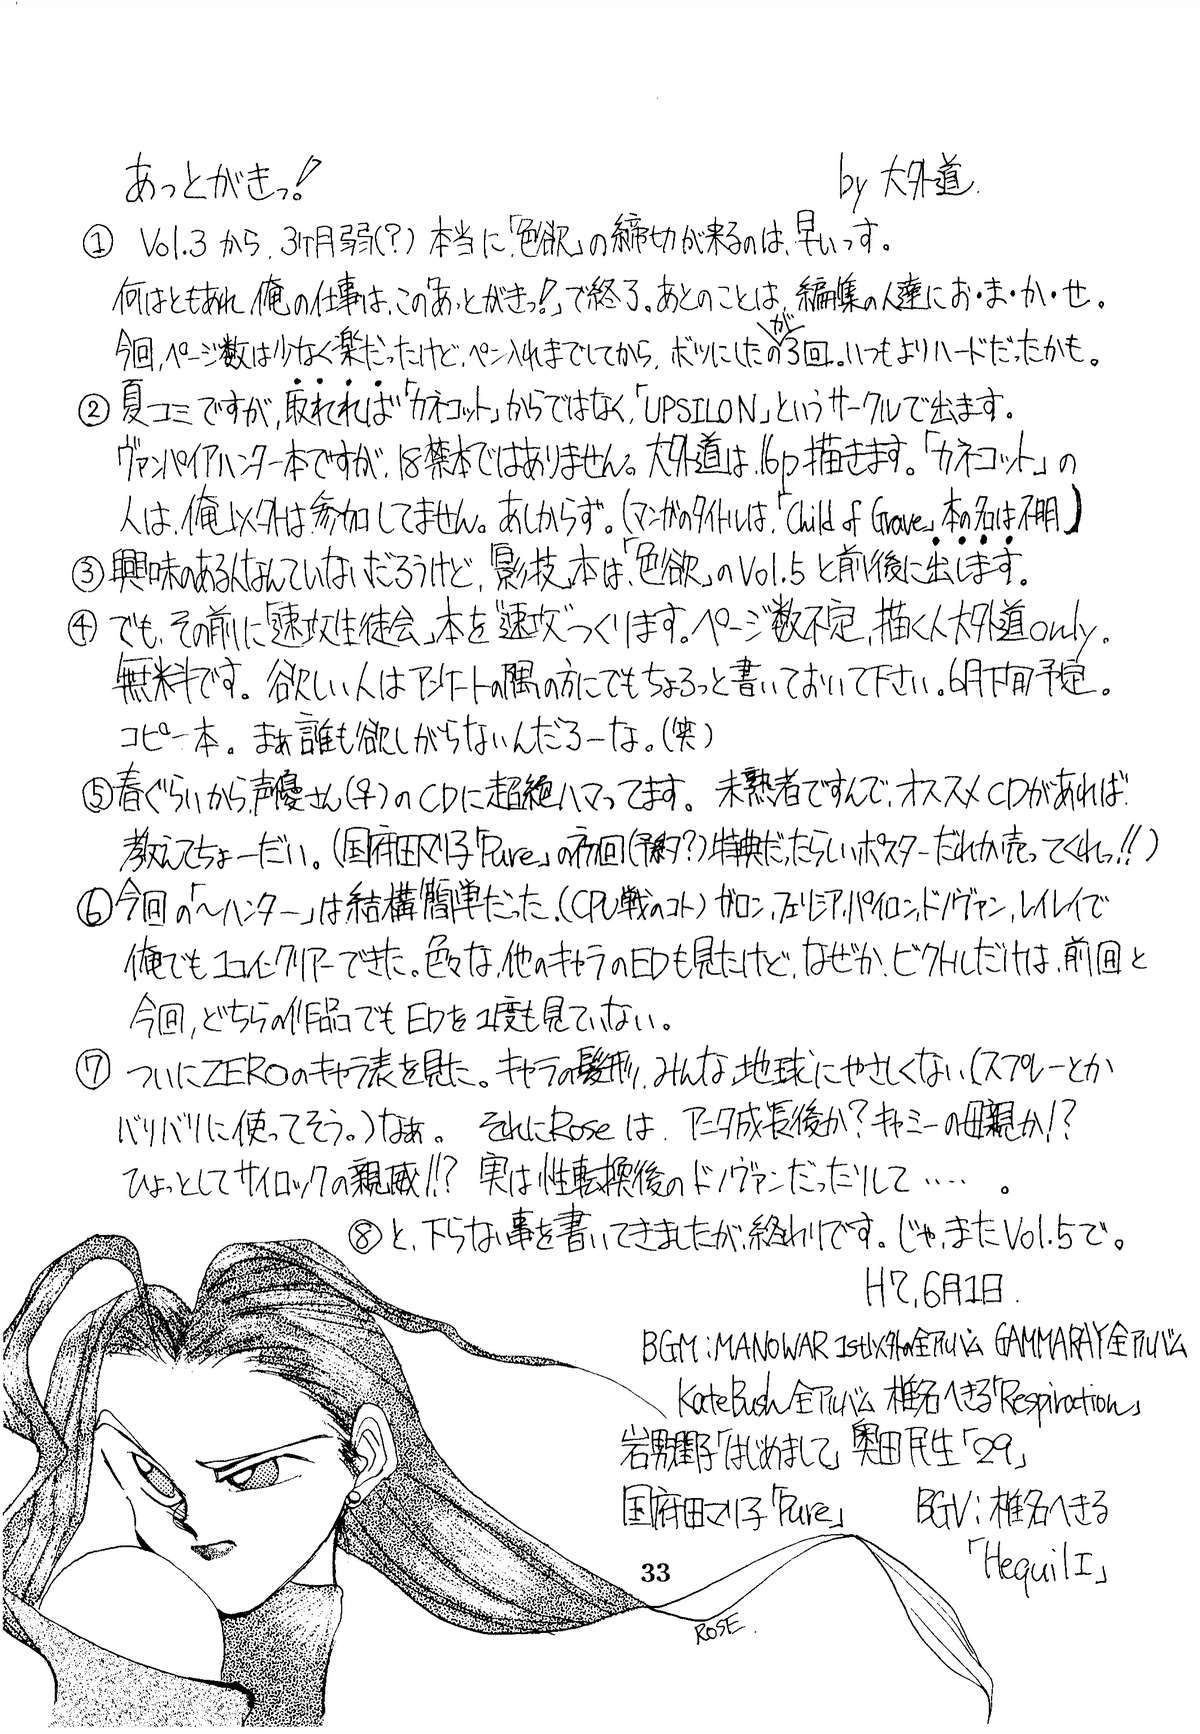 あっとがきっ!
by 大外道.
① Vol.3 から、3ケ月弱(?) 本当に「色欲」の締切が来るのは、早いっす。
何はともあれ、俺の仕事は、この「あっとがきっ!」で終了。あとのことは、編集の人達にお・ま・か・せ。
今回、ページ数は少なく楽だったけど、ペン入れまでしてから、ボツにしたのが3回。いつもよりハードだったかも。
② 夏コミですが、取れれば「カネコット」からではなく、「UPSILON」というサークルで出ます。
ヴァンパイアハンター本ですが、18禁本ではありません。大外道は、16p描きます。「カネコット」の
人は、俺以外は参加してません。あしからず。(マンガのタイトルは、「Child of Grave」本の名は不明)
③ 興味のある人なんていないだろうけど、「影技」本は、「色欲」のVol.5と前後に出します。
④ でも、その前に「速攻生徒会」本を“速攻”つくります。ページ数不定、描く人大外道only.
無料です。欲しい人はアンケートの隅の方にでもちょろっと書いておいて下さい。6月下旬予定。
コピー本。まぁ誰も欲しがらないんだろーな。(笑)
⑤ 春ぐらいから、声優さん(♀)のCDに超絶ハマってます。 未熟者ですんで、オススメCDがあれば、
教えてちょーだい。(国府田マリ子「Pure」の初回(予約?)特典だったらしいポスターだれか売ってくれっ!!)
⑥ 今回の「〜ハンター」は結構簡単だった、(CPU戦のコト)ガロン、フェリシア、パイロン、ドノヴァン、レイレイで
俺でも1コインクリアーできた。色々な、他のキャラのEDも見たけど、なぜか、ビクトルだけは、前回と
今回、どちらの作品でもEDを1度も見ていない。
⑦ ついにZEROのキャラ表を見た。キャラの髪形、みんな、地球にやさしくない(スプレーとか
バリバリに使ってそう。)なぁ。 それにRoseは、アニタ成長後か?キャミーの母親か!?
ひょっとしてサイロックの親戚!!? 実は性転換後のドノヴァンだったりして……。
⑧ と、下らない事を書いてきましたが、終わりです。じゃ、またVol.5で。
H7,6月1日.
BGM:MANOWAR 1st以外の全アルバム GAMMARAY全アルバム
Kate Bush 全アルバム 椎名へきる「Respiraction」
岩男潤子「はじめまして」 奥田民生「29」
国府田マリ子「Pure」
BGV:椎名へきる
「Hequil I」
33
ROSE.